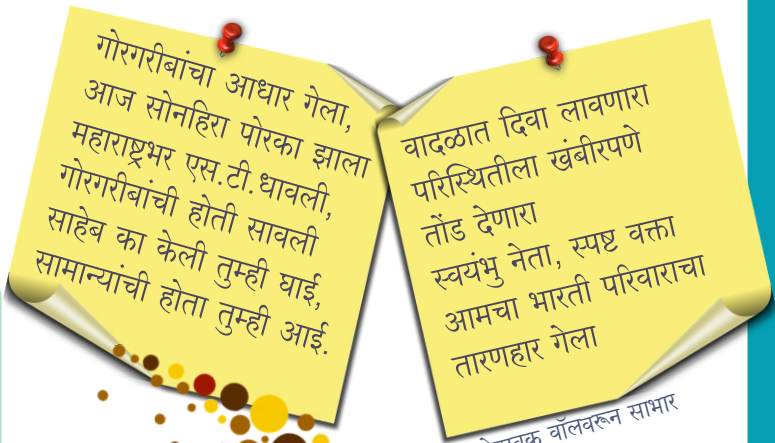 गोरगरीबांचा आधार गेला,
आज सोनहिरा पोरका झाला
महाराष्ट्रभर एस.टी.धावली,
गोरगरीबांची होती सावली
साहेब का केली तुम्ही घाई,
सामान्यांची होता तुम्ही आई.
वादळात दिवा लावणारा
परिस्थितीला खंबीरपणे
तोंड देणारा
स्वयंभु नेता, स्पष्ट वक्ता
आमचा भारती परिवाराचा
तारणहार गेला
वॉलवरून साभार